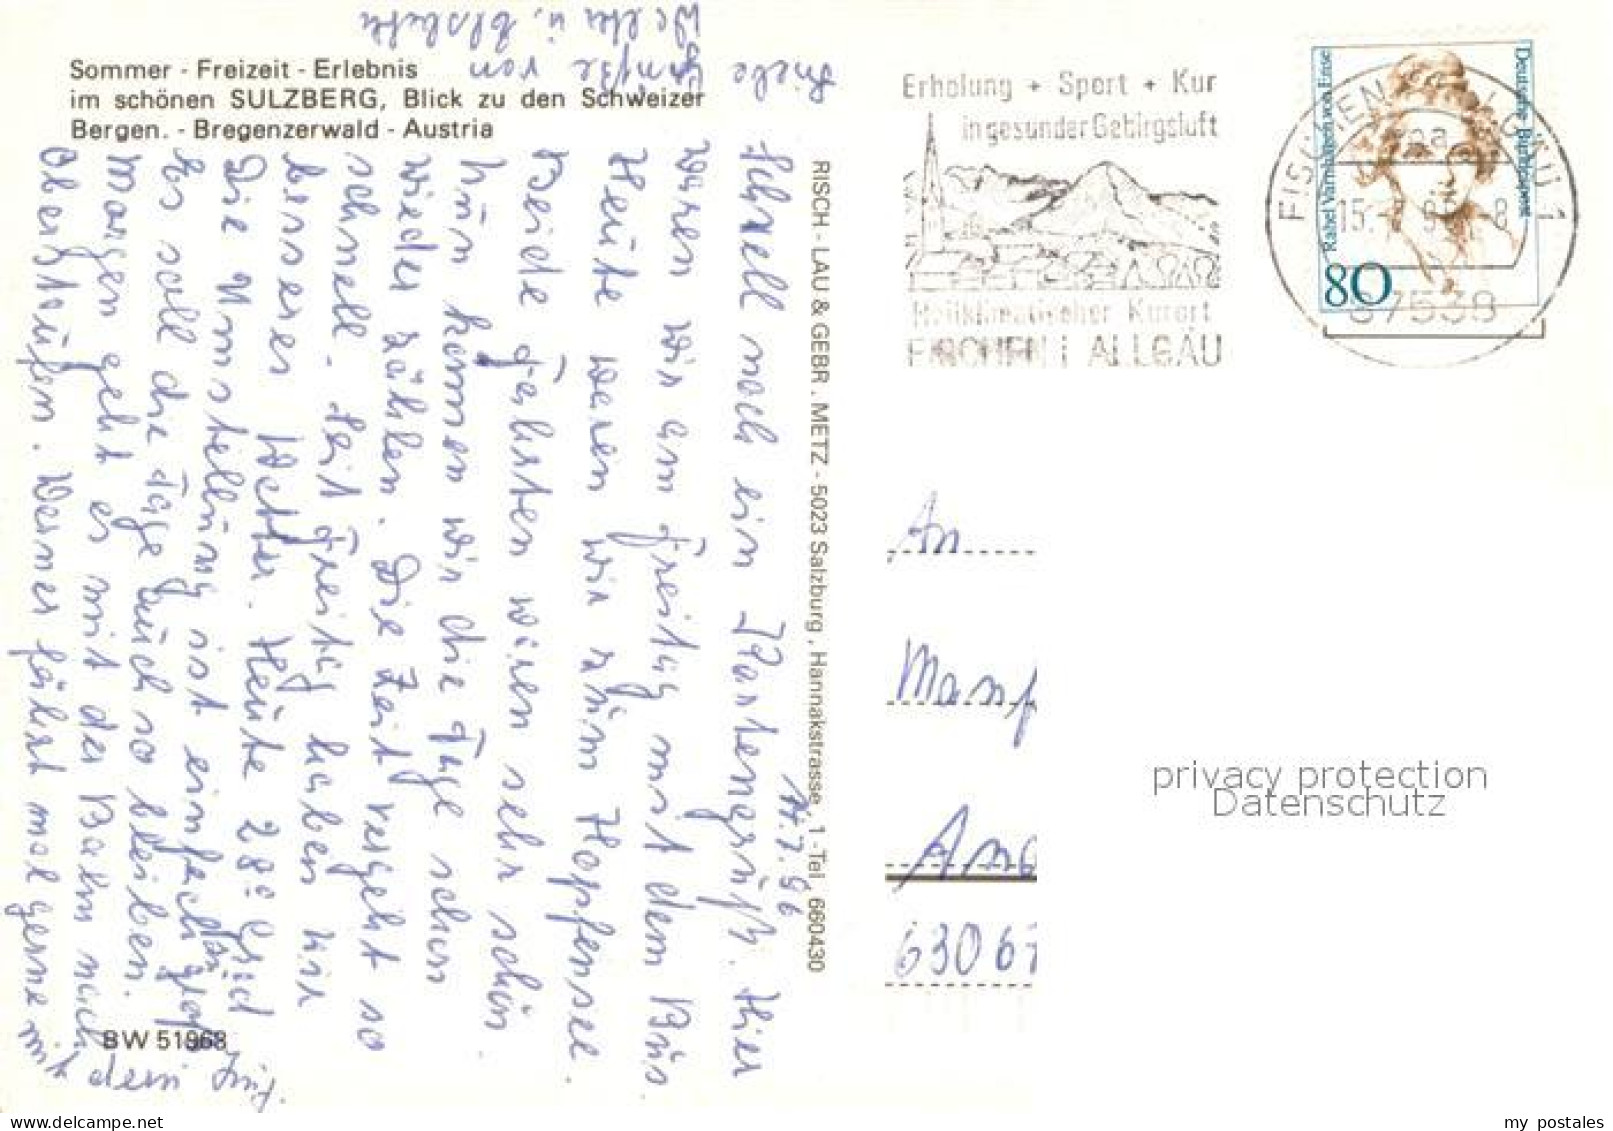 Sommer - Freizeit - Erlebnis
im schönen SULZBERG, Blick zu den Schweizer
Bergen. - Bregenzerwald - Austria
RISCH - LAU & GEBR. METZ - 5023 Salzburg, Hannakstrasse, 1 - Tel. 660430
BW 51968
14.7.96
Schnell noch ein Kartengrüß. Hier
waren wir am Freitag mit dem Büs.
Heute waren wir züm Hopfensee.
Beide Fahrten waren sehr schön.
Nün können wir die Tage schon
wieder zählen. Die Zeit vergeht so
schnell. Seit Freitag haben wir
besseres Wetter. Heüte 28° Grad
Die Umstellüng ist einfach zü groß
Es soll die Tage aüch so bleiben.
Morgen geht es mit der Bahn nach
Oberstaüfen. Werner fährt mal gerne mit
dem Züg.
Liebe Grüße von
Walter ü. Elsbeth
Erholung + Sport + Kur
in gesunder Gebirgsluft
Heilklimatischer Kurort
FISCHEN I ALLGÄU
Deutsche Bundespost
Rahel Varnhagen von Ense
80
FISCHEN ALLGÄU 1
aa
15.
8
87538
An
Manf
63067
privacy protection
Datenschutz
my postales